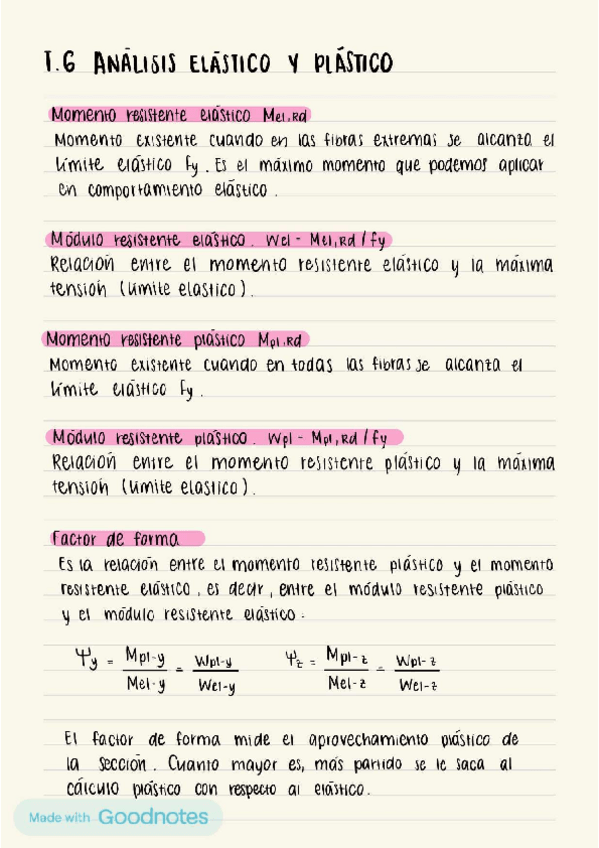 T.6 ANÁLISIS ELÁSTICO Y PLÁSTICO
Momento resistente elástico Mel,Rd
Momento existente cuando en las fibras extremas se alcanza el
límite elástico fy. Es el máximo momento que podemos aplicar
en comportamiento elástico.
Módulo resistente elástico. Wel - Mel,Rd / fy
Relación entre el momento resistente elástico y la máxima
tensión (límite elástico).
Momento resistente plástico Mpl.Rd
Momento existente cuando en todas las fibras se alcanza el
límite elástico fy.
Módulo resistente plástico. Wpl - Mpl,Rd / fy
Relación entre el momento resistente plástico y la máxima
tensión (límite elastico).
Factor de forma
Es la relación entre el momento resistente plástico y el momento
resistente elástico, es decir, entre el módulo resistente plástico
y el módulo resistente elástico:
Ψy = Mpl-y / Mel-y = Wpl-y / Wel-y    Ψz = Mpl-z / Mel-z = Wpl-z / Wel-z
El factor de forma mide el aprovechamiento plástico de
la sección. Cuanto mayor es, más partido se le saca al
cálculo plástico con respecto al elástico.
Made with Goodnotes